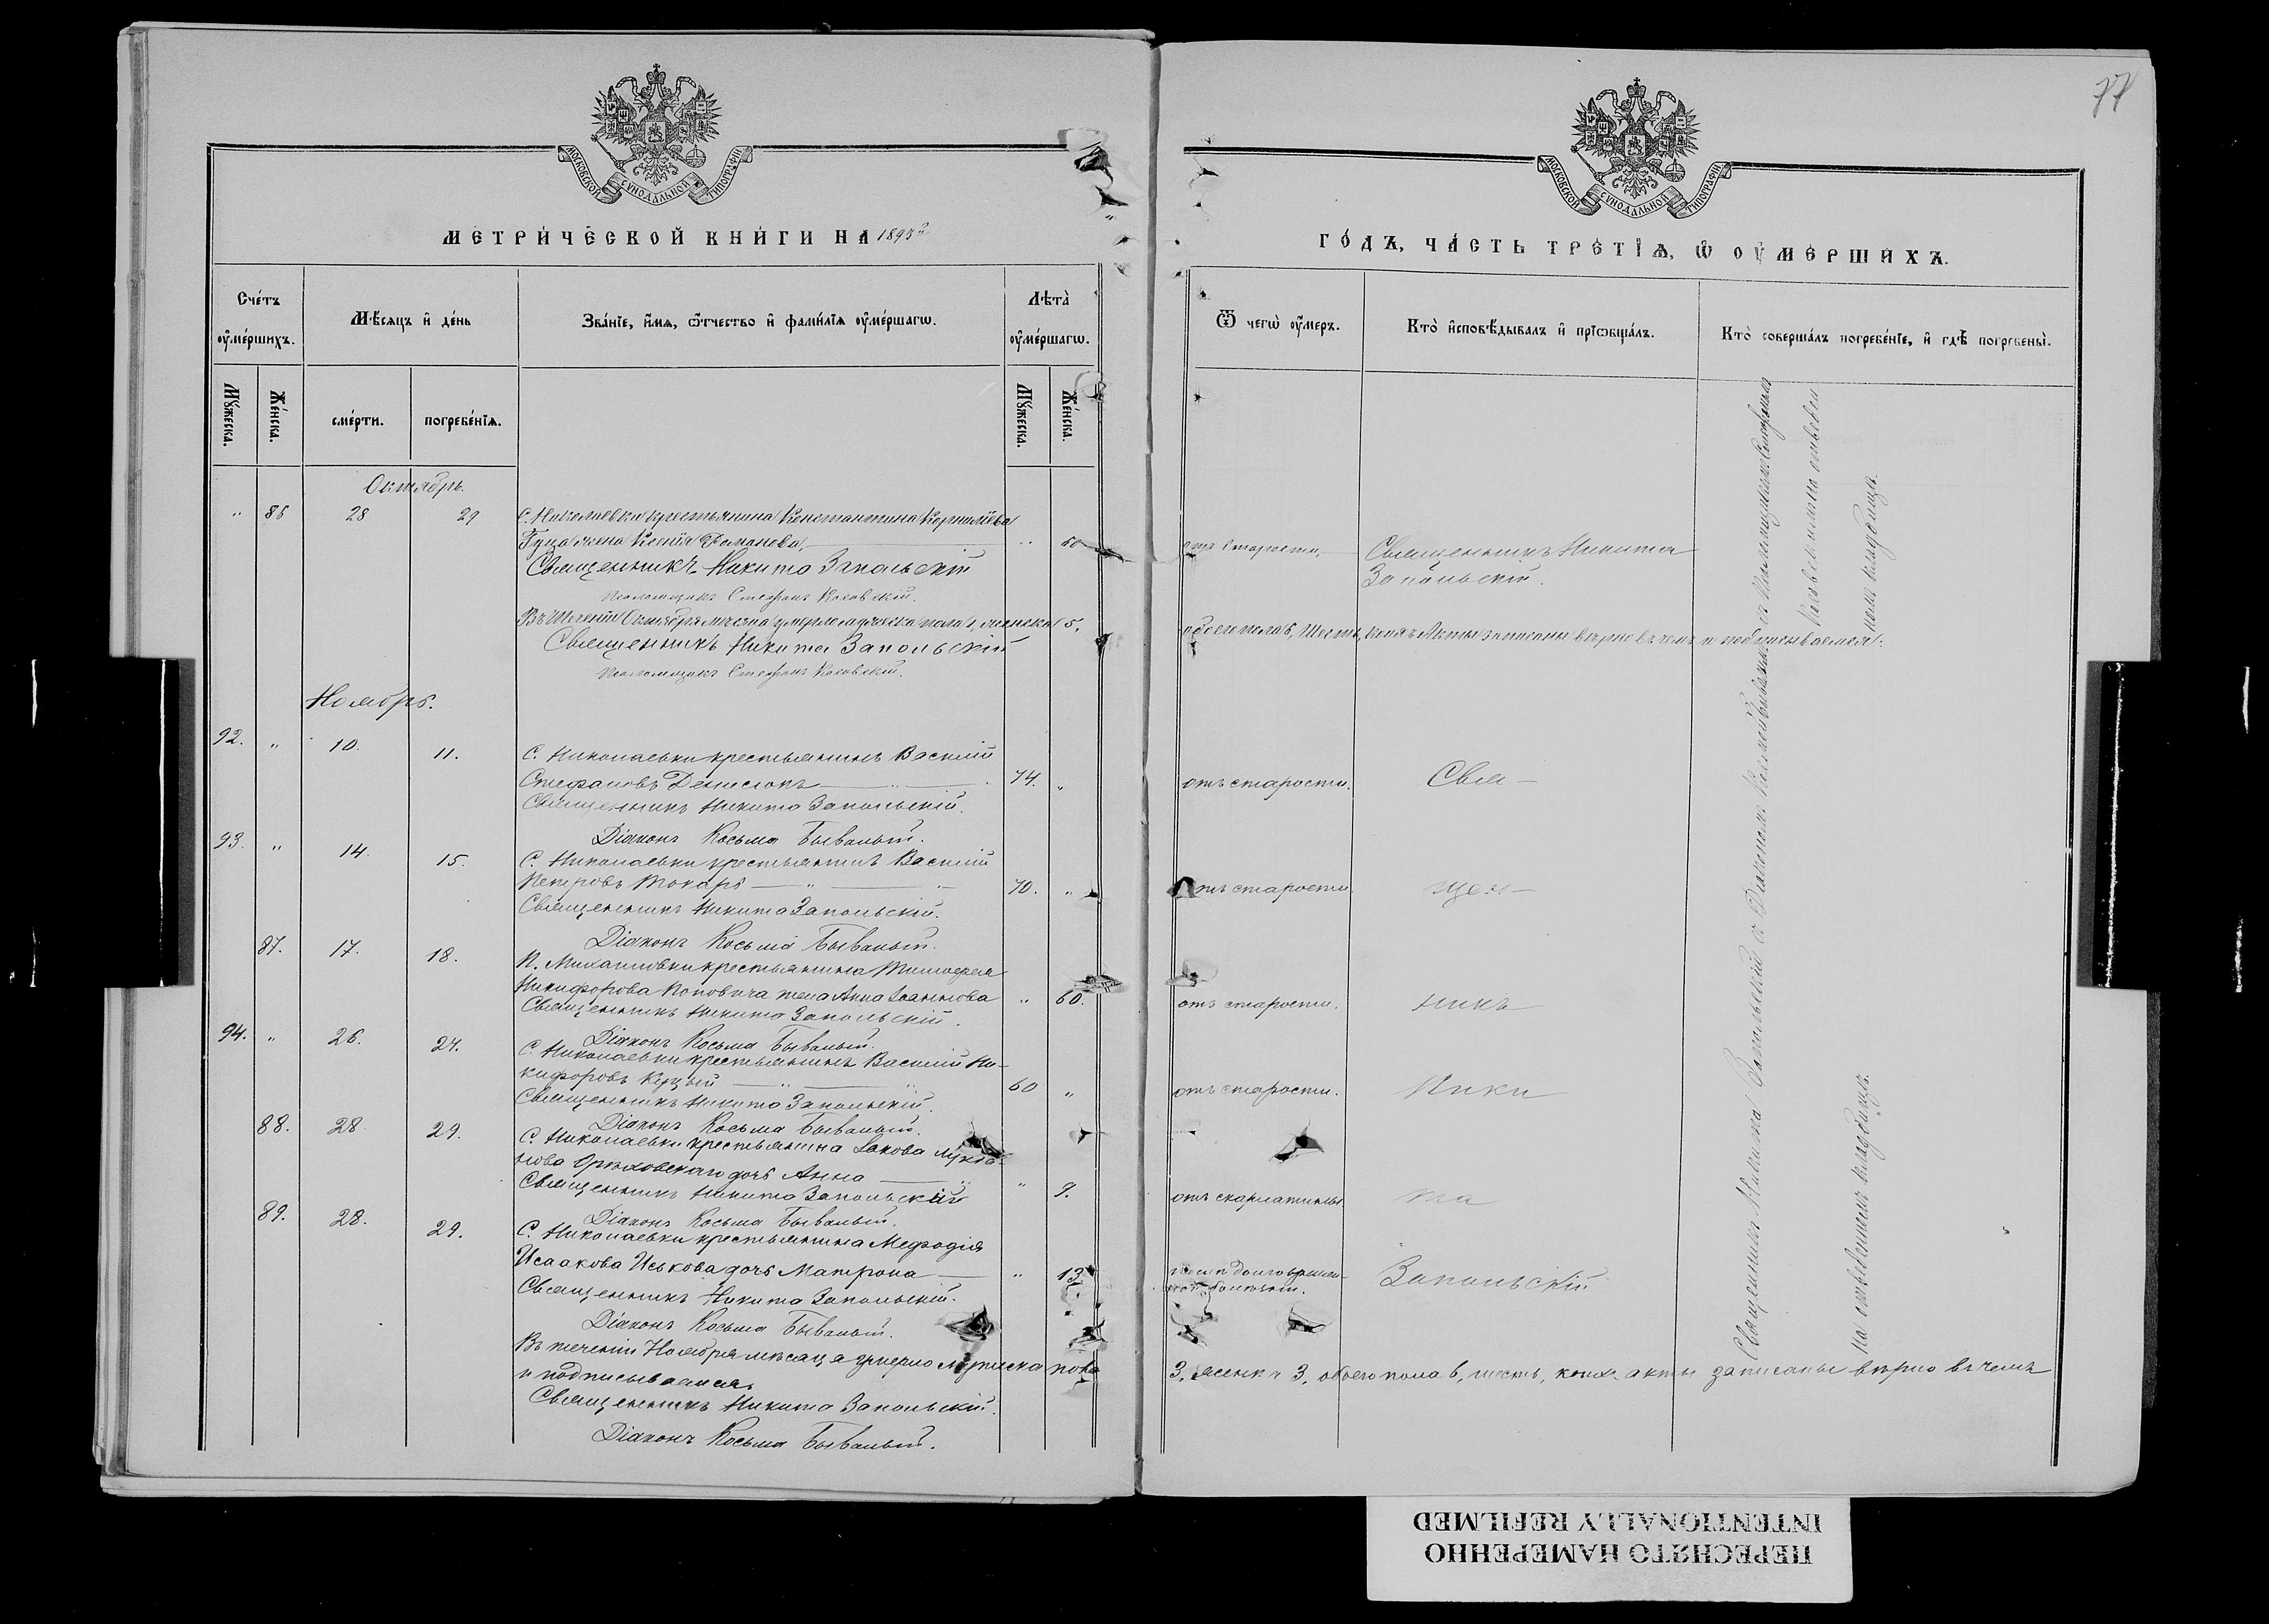 77
МОСКОВСКОЙ СѴНОДАЛЬНОЙ ТИПОГРАФІИ
МОСКОВСКОЙ СѴНОДАЛЬНОЙ ТИПОГРАФІИ
МЕТРИЧЕСКОЙ КНИГИ НА 1893 г
ГОДЪ, ЧАСТЬ ТРЕТІѦ, Ѡ ОУМЕРШИХЪ.
Счетъ оумершихъ.
Мѣсяцъ и день
Званіе, имя, ѿчество и фамилія оумершагѡ.
Лѣта оумершагѡ.
Ѿ чегѡ оумеръ.
Кто исповѣдывалъ и пріѡбщалъ.
Кто совершалъ погребеніе, и гдѣ погребены.
Мꙋжеска.
Женска.
смерти.
погребенія.
Мꙋжеска.
Женска.
Октябрь.
" 86 28 29 С. Николаевки крестьянина Константина Корнилiева
Гуца жена Ксенія Романова, " 60 отъ старости, Священникъ Никита
Священникъ Никита Запольскій Запольскій.
Псаломщикъ Стефанъ Косовскій.
Въ теченіи Октября мѣсяца умерло мужеска пола 1, женска 5, обоего пола 6, шесть, коихъ Акты записаны вѣрно въ чемъ и подписываемся:
Священникъ Никита Запольскій
Псаломщикъ Стефанъ Косовскій.
Ноябрь.
92. " 10. 11. С. Николаевки крестьянинъ Василій
Стефановъ Денисюкъ 74. " отъ старости. Свя-
Священникъ Никита Запольскій.
Діаконъ Косьма Бывалый.
93. " 14. 15. С. Николаевки крестьянинъ Василій
Петровъ Токарь 70. " отъ старости щен-
Священникъ Никита Запольскій.
Діаконъ Косьма Бывалый.
87. 17. 18. П. Михайловки крестьянина Тимофея
Никифорова Поповича жена Анна Іоаннова " 60. отъ старости. никъ
Священникъ Никита Запольскій.
Діаконъ Косьма Бывалый.
94. " 26. 27. С. Николаевки крестьянинъ Василій Ни-
кифоровъ Куцый 60 " отъ старости. Ники
Священникъ Никита Запольскій.
Діаконъ Косьма Бывалый.
88. 28. 29. С. Николаевки крестьянина Іакова Лукіа-
нова Орѣховскаго дочь Анна " 9. отъ скарлатины та
Священникъ Никита Запольскій
Діаконъ Косьма Бывалый.
89. 28. 29. С. Николаевки крестьянина Мефодія
Исаакова Иськова дочь Матрона " 13 Запольскій
Священникъ Никита Запольскій.
Діаконъ Косьма Бывалый.
Въ теченіи Ноября мѣсяца умерло мужеска пола 3, женска 3, обоего пола 6, шесть, коихъ акты записаны вѣрно въ чемъ
и подписываемся.
Священникъ Никита Запольскій.
Діаконъ Косьма Бывалый.
Священникъ Никита Запольскій съ Діакономъ Космою Бывалымъ и Псаломщикомъ Стефаномъ
на отведенномъ кладбищѣ.
ПЕРЕСНЯТО НАМЕРЕННО
INTENTIONALLY REFILMED